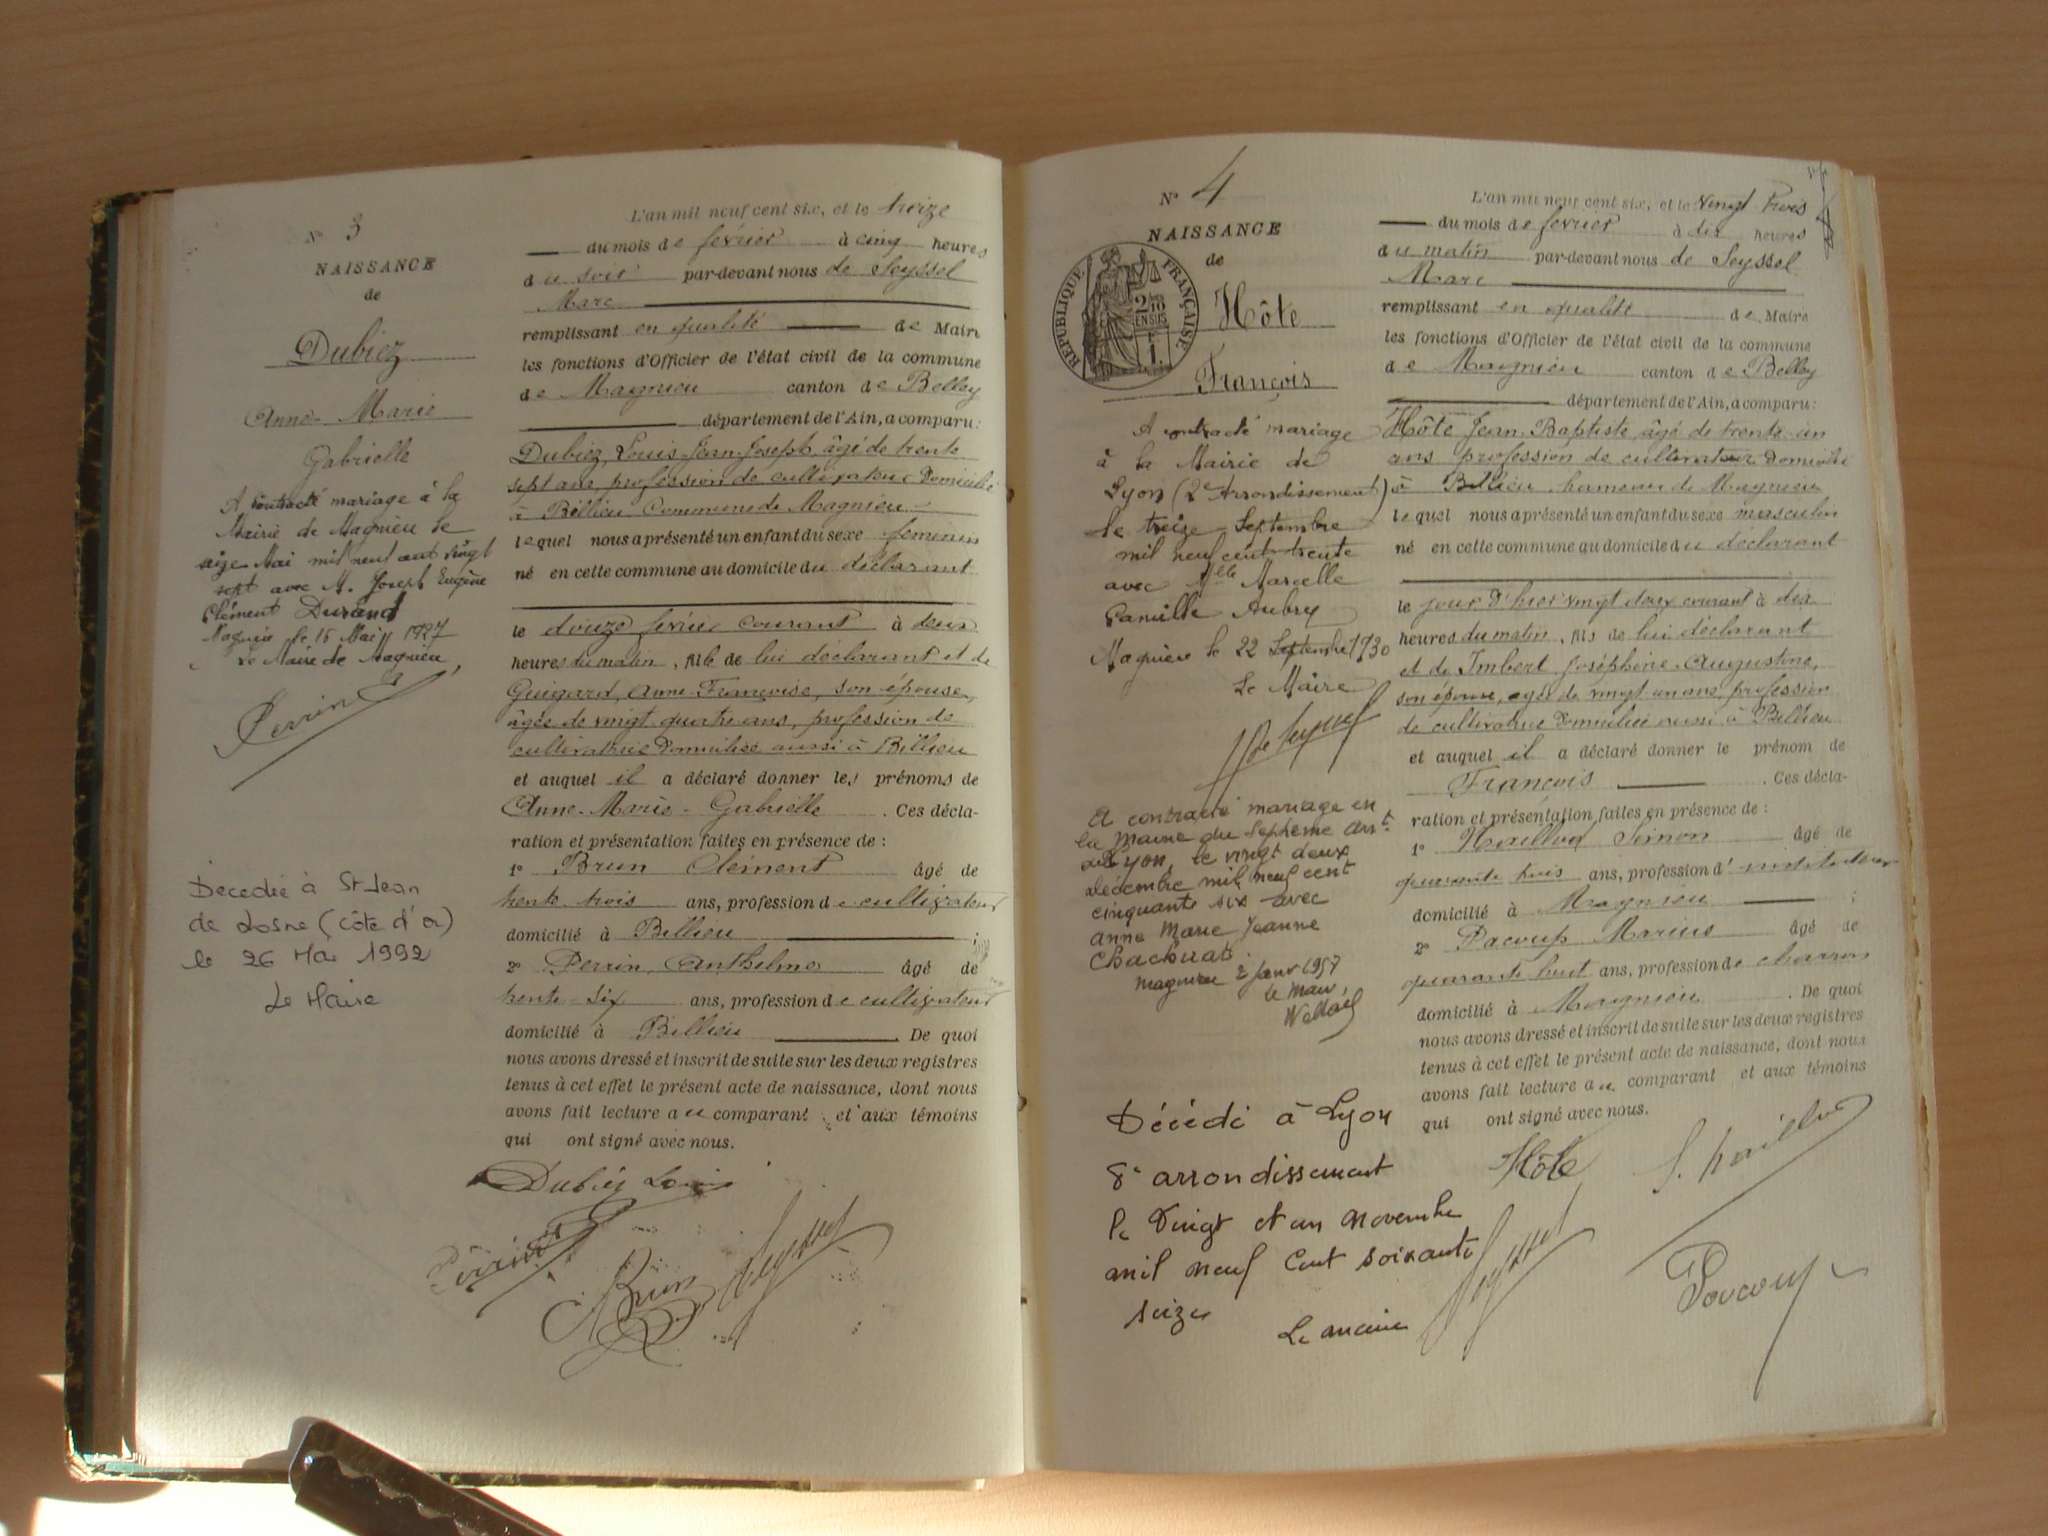 N° 3
NAISSANCE
de
Dubiez
Anne-Marie
Gabrielle
A contracté mariage à la
Mairie de Magnieu le
Mai mil neuf cent vingt
sept avec M. Joseph Eugène
Clément Durand
Magnieu le 15 Mai 1927
Le Maire de Magnieu,
Perrin
Décédée à St Jean
de Losne (Côte d'Or)
le 26 Mai 1992
Le Maire
L'an mil neuf cent six, et le treize
du mois de février à cinq heures
du soir par-devant nous de Seyssel
Marc
remplissant en qualité de Maire
les fonctions d'Officier de l'état civil de la commune
de Magnieu canton de Belley
département de l'Ain, a comparu:
Dubiez, Louis-Jean-Joseph, âgé de trente
sept ans, profession de cultivateur Domicilié
à Billieu Commune de Magnieu
lequel nous a présenté un enfant du sexe féminin
né en cette commune au domicile du déclarant
le douze février courant à deux
heures du matin, fille de lui déclarant et de
Guigard, Anne-Françoise, son épouse,
âgée de vingt quatre ans, profession de
cultivatrice Domiciliée aussi à Billieu
et auquel il a déclaré donner les prénoms de
Anne-Marie-Gabrielle. Ces décla-
ration et présentation faites en présence de :
1° Brun Clément âgé de
trente trois ans, profession de cultivateur
domicilié à Billieu ;
2° Perrin, Anthelme âgé de
trente-six ans, profession de cultivateur
domicilié à Billieu De quoi
nous avons dressé et inscrit de suite sur les deux registres
tenus à cet effet le présent acte de naissance, dont nous
avons fait lecture au comparant et aux témoins
qui ont signé avec nous.
Dubiez Louis
Perrin
Brun
N° 4
NAISSANCE
de
RÉPUBLIQUE FRANÇAISE
Hôte
François
A contracté mariage
à la Mairie de
Lyon (2e Arrondissement)
le treize Septembre
mil neuf cent trente
avec Mlle Marcelle
Camille Aubry
Magnieu le 22 Septembre 1930
Le Maire
A contracté mariage en
la Mairie du septième Arrt
de Lyon, le vingt deux
décembre mil neuf cent
cinquante six avec
Anne Marie Jeanne
Magnieu 2 Janv 1957
le Maire,
Décédé à Lyon
8e arrondissement
le Vingt et un novembre
mil neuf Cent soixante
seize
Le maire
L'an mil neuf cent six, et le vingt trois
du mois de février à dix heures
du matin par-devant nous de Seyssel
Marc
remplissant en qualité de Maire
les fonctions d'Officier de l'état civil de la commune
de Magnieu canton de Belley
département de l'Ain, a comparu:
Hôte Jean-Baptiste, âgé de trente-un
ans profession de cultivateur Domicilié
à Billieu hameau de Magnieu
lequel nous a présenté un enfant du sexe masculin
né en cette commune au domicile du déclarant
le jour d'hier vingt deux courant à dix
heures du matin, fils de lui déclarant
et de Imbert Joséphine-Augustine,
son épouse, âgée de vingt un ans, profession
de cultivatrice Domiciliée aussi à Billieu
et auquel il a déclaré donner le prénom de
François. Ces décla-
ration et présentation faites en présence de :
1° Simon âgé de
quarante trois ans, profession d'instituteur
domicilié à Magnieu ;
2° Pacoup Marius âgé de
quarante huit ans, profession de charron
domicilié à Magnieu. De quoi
nous avons dressé et inscrit de suite sur les deux registres
tenus à cet effet le présent acte de naissance, dont nous
avons fait lecture au comparant et aux témoins
qui ont signé avec nous.
Hôte
Pacoup